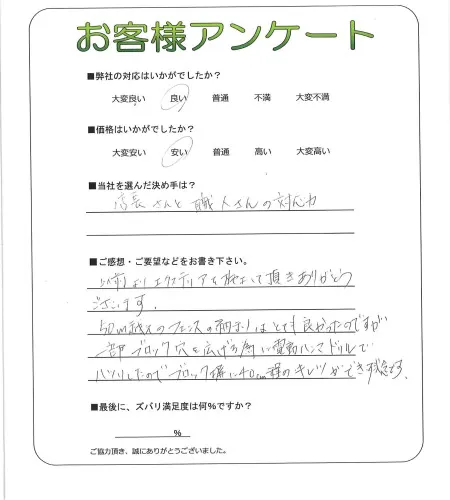 お客様アンケート
■弊社の対応はいかがでしたか？
大変良い 良い 普通 不満 大変不満
■価格はいかがでしたか？
大変安い 安い 普通 高い 大変高い
■当社を選んだ決め手は？
店長さんと職人さんの対応力
■ご感想・ご要望などをお書き下さい。
以前よりエクステリアを 頂きありがとう
ございます。
50m越えのフェンスの柄ホリはとても良かったのですが
一部ブロック穴を広げる為に電動ハンマドリルで
ハツリしたのでブロック 様に40cm程のキレツができ
■最後に、ズバリ満足度は何％ですか？
％
ご協力頂き、誠にありがとうございました。